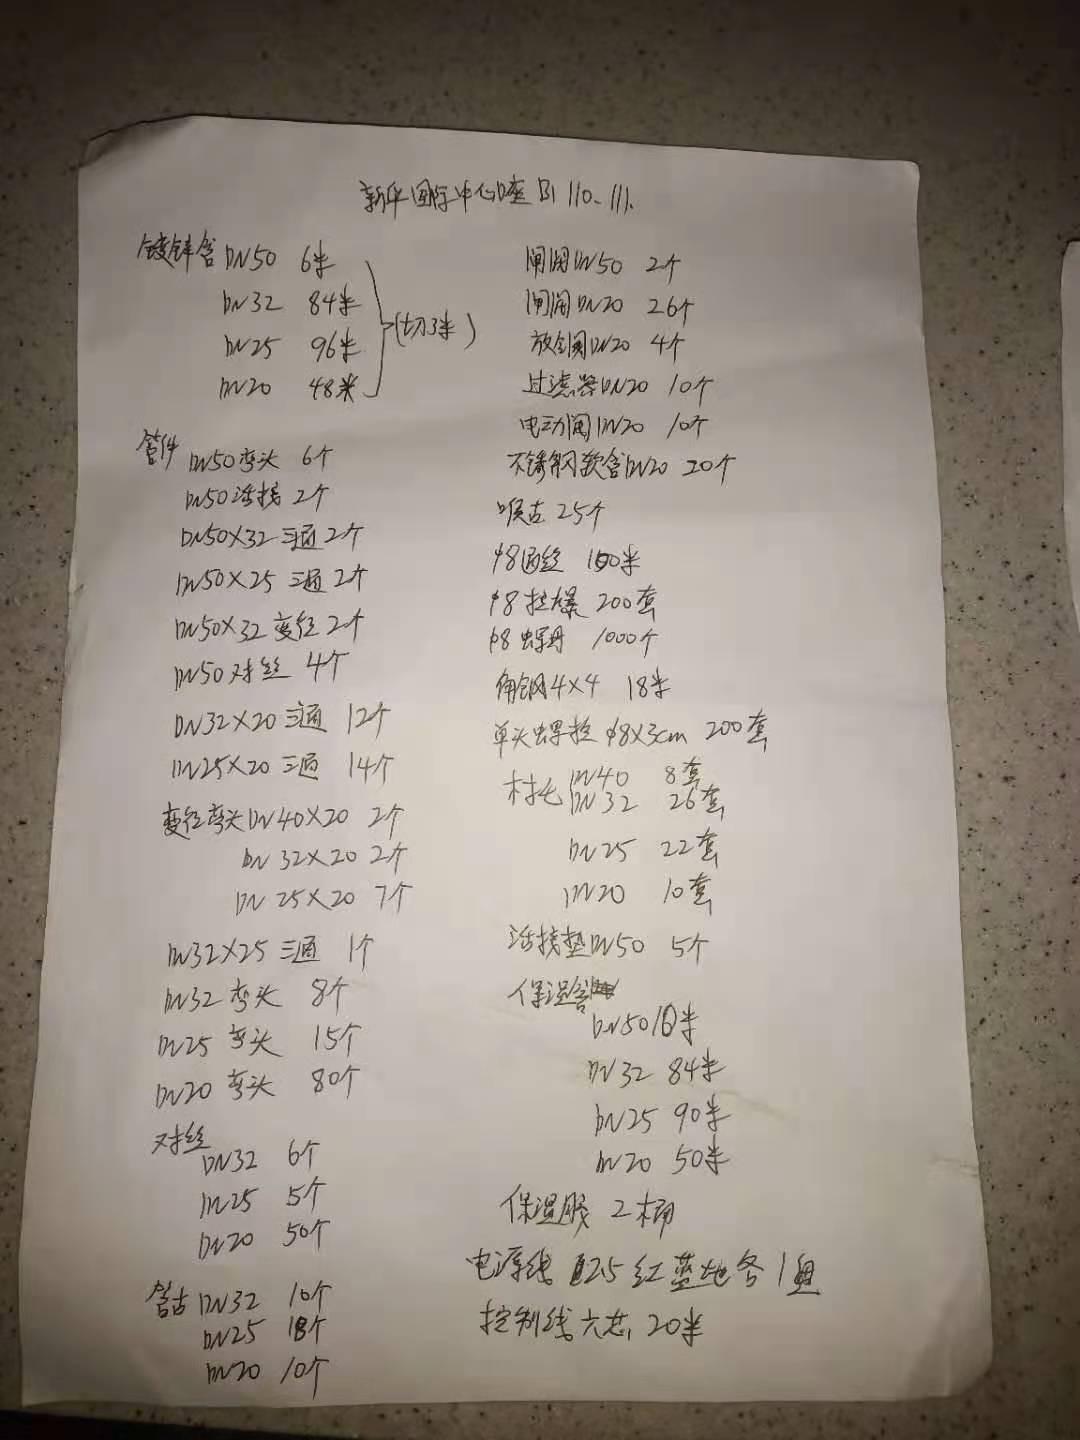 新华国际中心B座B1 110、111、
镀锌管DN50 6米
DN32 84米
DN25 96米
DN20 48米
(切3米)
管件 DN50弯头 6个
DN50活接 2个
DN50X32三通 2个
DN50X25三通 2个
DN50X32变径 2个
DN50对丝 4个
DN32X20三通 12个
DN25X20三通 14个
变径弯头DN40X20 2个
DN32X20 2个
DN25X20 7个
DN32X25三通 1个
DN32弯头 8个
DN25弯头 15个
DN20弯头 80个
对丝
DN32 6个
DN25 5个
DN20 50个
管古DN32 10个
DN25 18个
DN20 10个
闸阀DN50 2个
闸阀DN20 26个
放气阀DN20 4个
过滤器DN20 10个
电动阀DN20 10个
不锈钢软管DN20 20个
喉古 25个
φ8通丝 100米
φ8拉爆 200套
φ8螺母 1000个
角钢4X4 18米
单头螺栓φ8X3cm 200套
木托DN40 8套
DN32 26套
DN25 22套
DN20 10套
活接垫DN50 5个
保温管
DN50 10米
DN32 84米
DN25 90米
DN20 50米
保温胶 2桶
电源线 2.5红蓝地各1盘
控制线六芯 20米